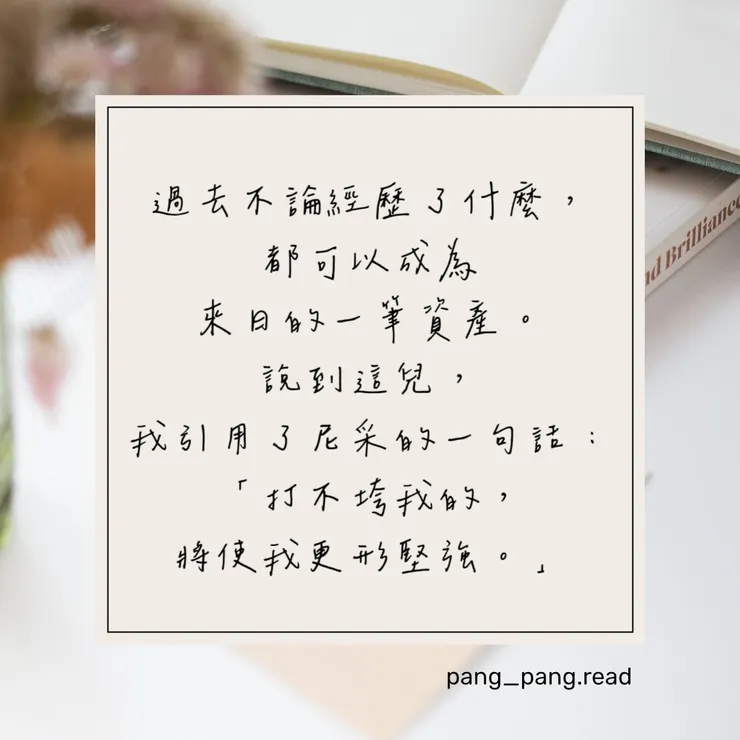 過去不論經歷了什麼，
都可以成為
來日的一筆資產。
說到這兒，
我引用了尼采的一句話：
「打不垮我的，
將使我更形堅強。」
pang_pang.read
nd Brilliance